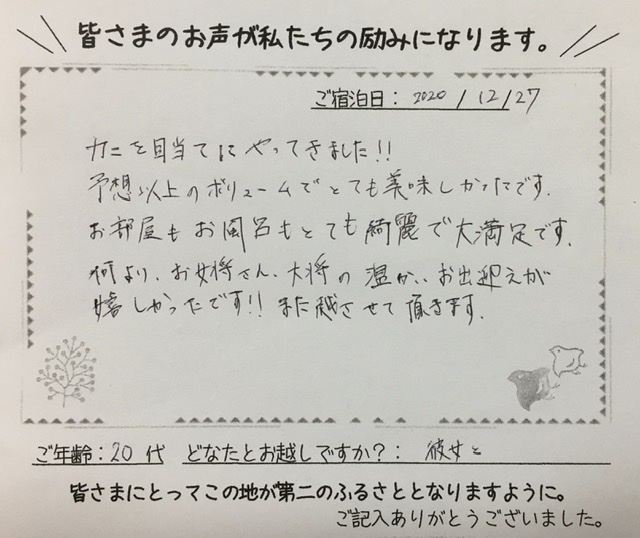 皆さまのお声が私たちの励みになります。
ご宿泊日：2020/12/27
カニを目当てにやってきました!!
予想以上のボリュームでとても美味しかったです.
お部屋もお風呂もとても綺麗で大満足です.
何より、お女将さん、大将の温かいお出迎えが
嬉しかったです!! また越させて頂きます.
ご年齢：20代 どなたとお越しですか？： 彼女と
皆さまにとってこの地が第二のふるさととなりますように。
ご記入ありがとうございました。